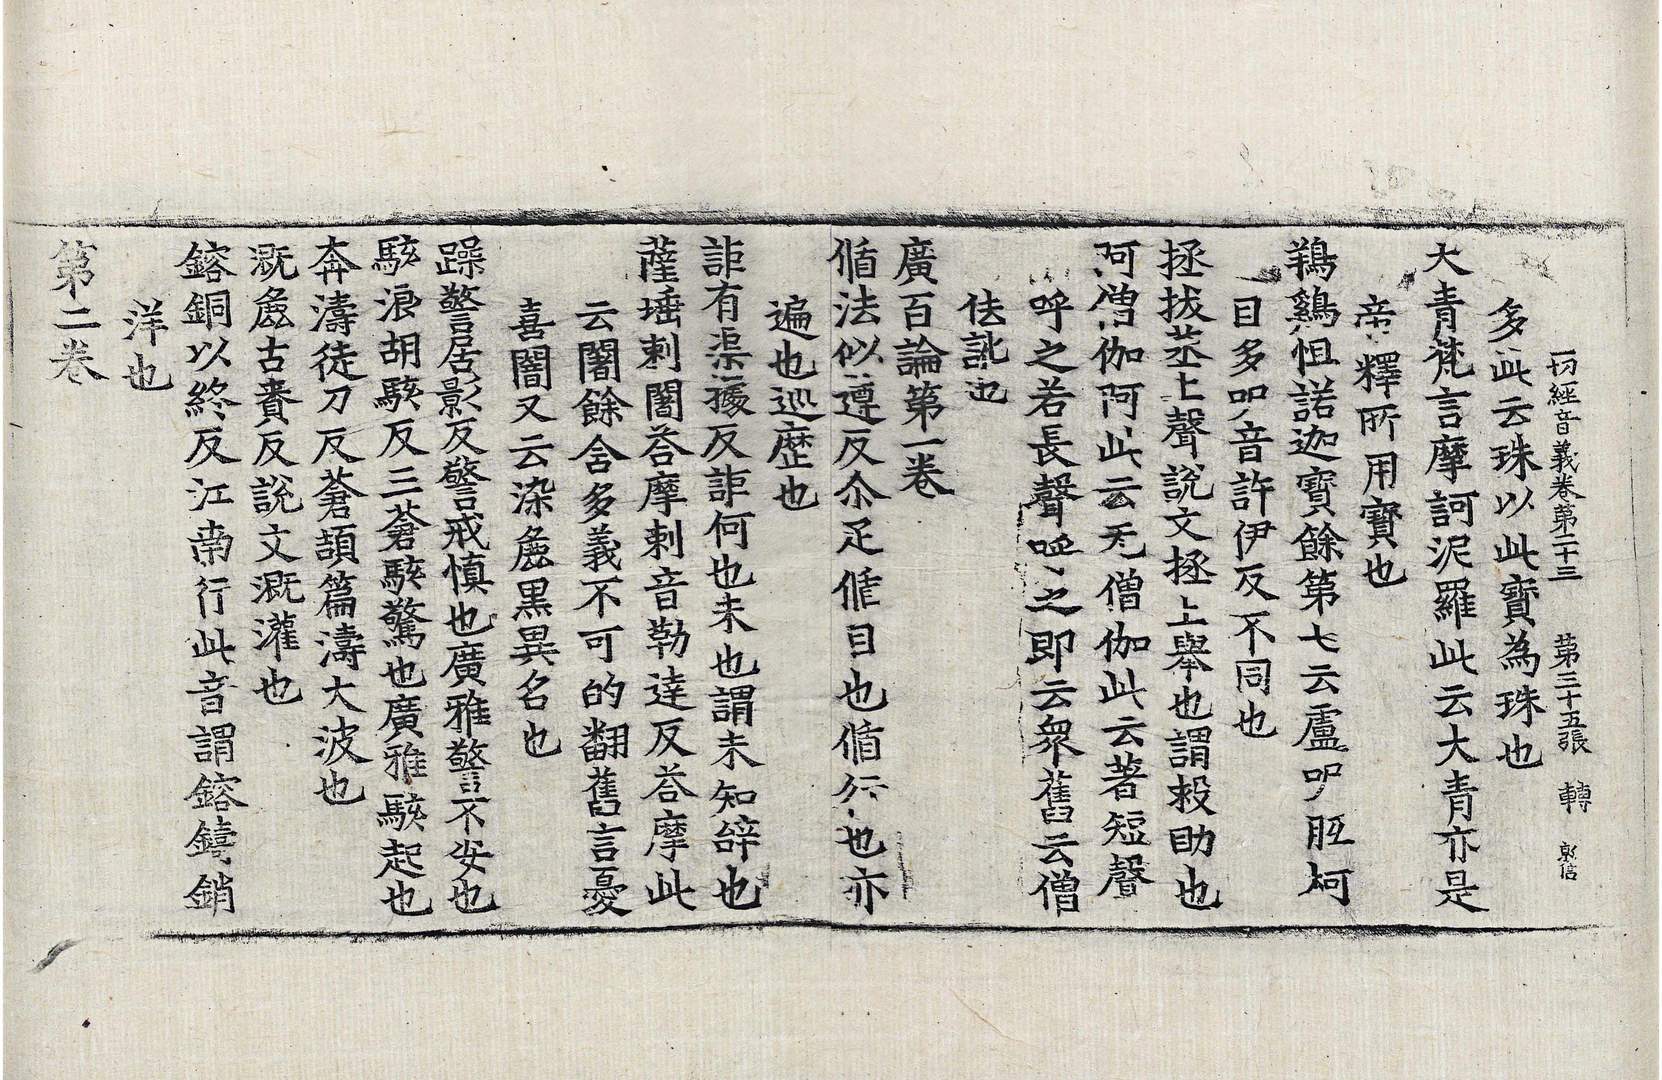 一切經音義卷第二十三 第三十五張 轉
多此云珠以此寳為珠也
大青梵言摩訶泥羅此云大青亦是
帝釋所用寳也
鵶鷄怛諾迦寳餘第七云盧
目多叩音許伊反不同也
拯拔蒸上聲說文拯上舉也謂救助也
阿僧伽阿此云无僧伽此云著短聲
呼之若長聲呼之即云衆舊云僧
佉訛也
廣百論第一卷
循法似遵反尒疋循自也循行也亦
遍也巡歷也
詎有渠據反詎何也未也謂未知辝也
薩埵剌闇荅摩剌音勒達反荅摩此
云闇餘含多義不可的翻舊言憂
喜闇又云染麁黒異名也
躁警居影反警戒慎也廣雅警不安也
駭浪胡駭反三蒼駭驚也廣雅駭起也
奔濤徒刀反蒼頡篇濤大波也
溉麁古賚反說文溉灌也
鎔銅以終反江南行此音謂鎔鑄銷
洋也
第二卷